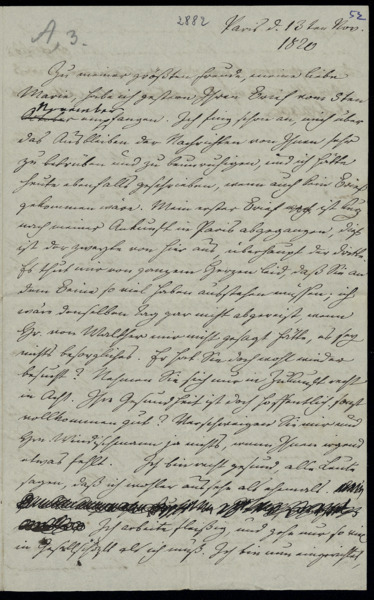 52
2882
A 3.
Paris d. 13ten Nov.
1820
Zu meiner größten Freude, meine liebe
Maria, habe ich gestern Ihren Brief vom 3ten
November
empfangen. Ich fing schon an, mich über
das Ausbleiben der Nachrichten von Ihnen sehr
zu betrüben und zu beunruhigen, und ich hätte
heute ebenfalls geschrieben, wenn auch kein Brief
gekommen wäre. Mein erster Brief ist kurz
nach meiner Ankunft in Paris abgegangen, dieß
ist der zweyte von hier aus überhaupt der dritte.
Es thut mir von ganzem Herzen leid, daß Sie an
dem Beine so viel haben ausstehen müssen: ich
wäre denselben Tag gar nicht abgereist wenn
Hr. von Walther mir nicht gesagt hätte, es sey
nichts besorgliches. Er hat Sie doch wohl wieder
besucht? Nehmen Sie sich nur in Zukunft recht
in Acht. Ihre Gesundheit ist doch hoffentlich sonst
vollkommen gut? Verschweigen Sie mir und
Hrn. Windischmann ja nichts, wenn Ihnen irgend
etwas fehlt. Ich bin recht gesund, alle Leute
sagen, daß ich wohler aussehe als ehemals
Ich arbeite fleißig und gehe nur so viel
in Gesellschaft als ich muß. Ich bin nun eingerichtet,